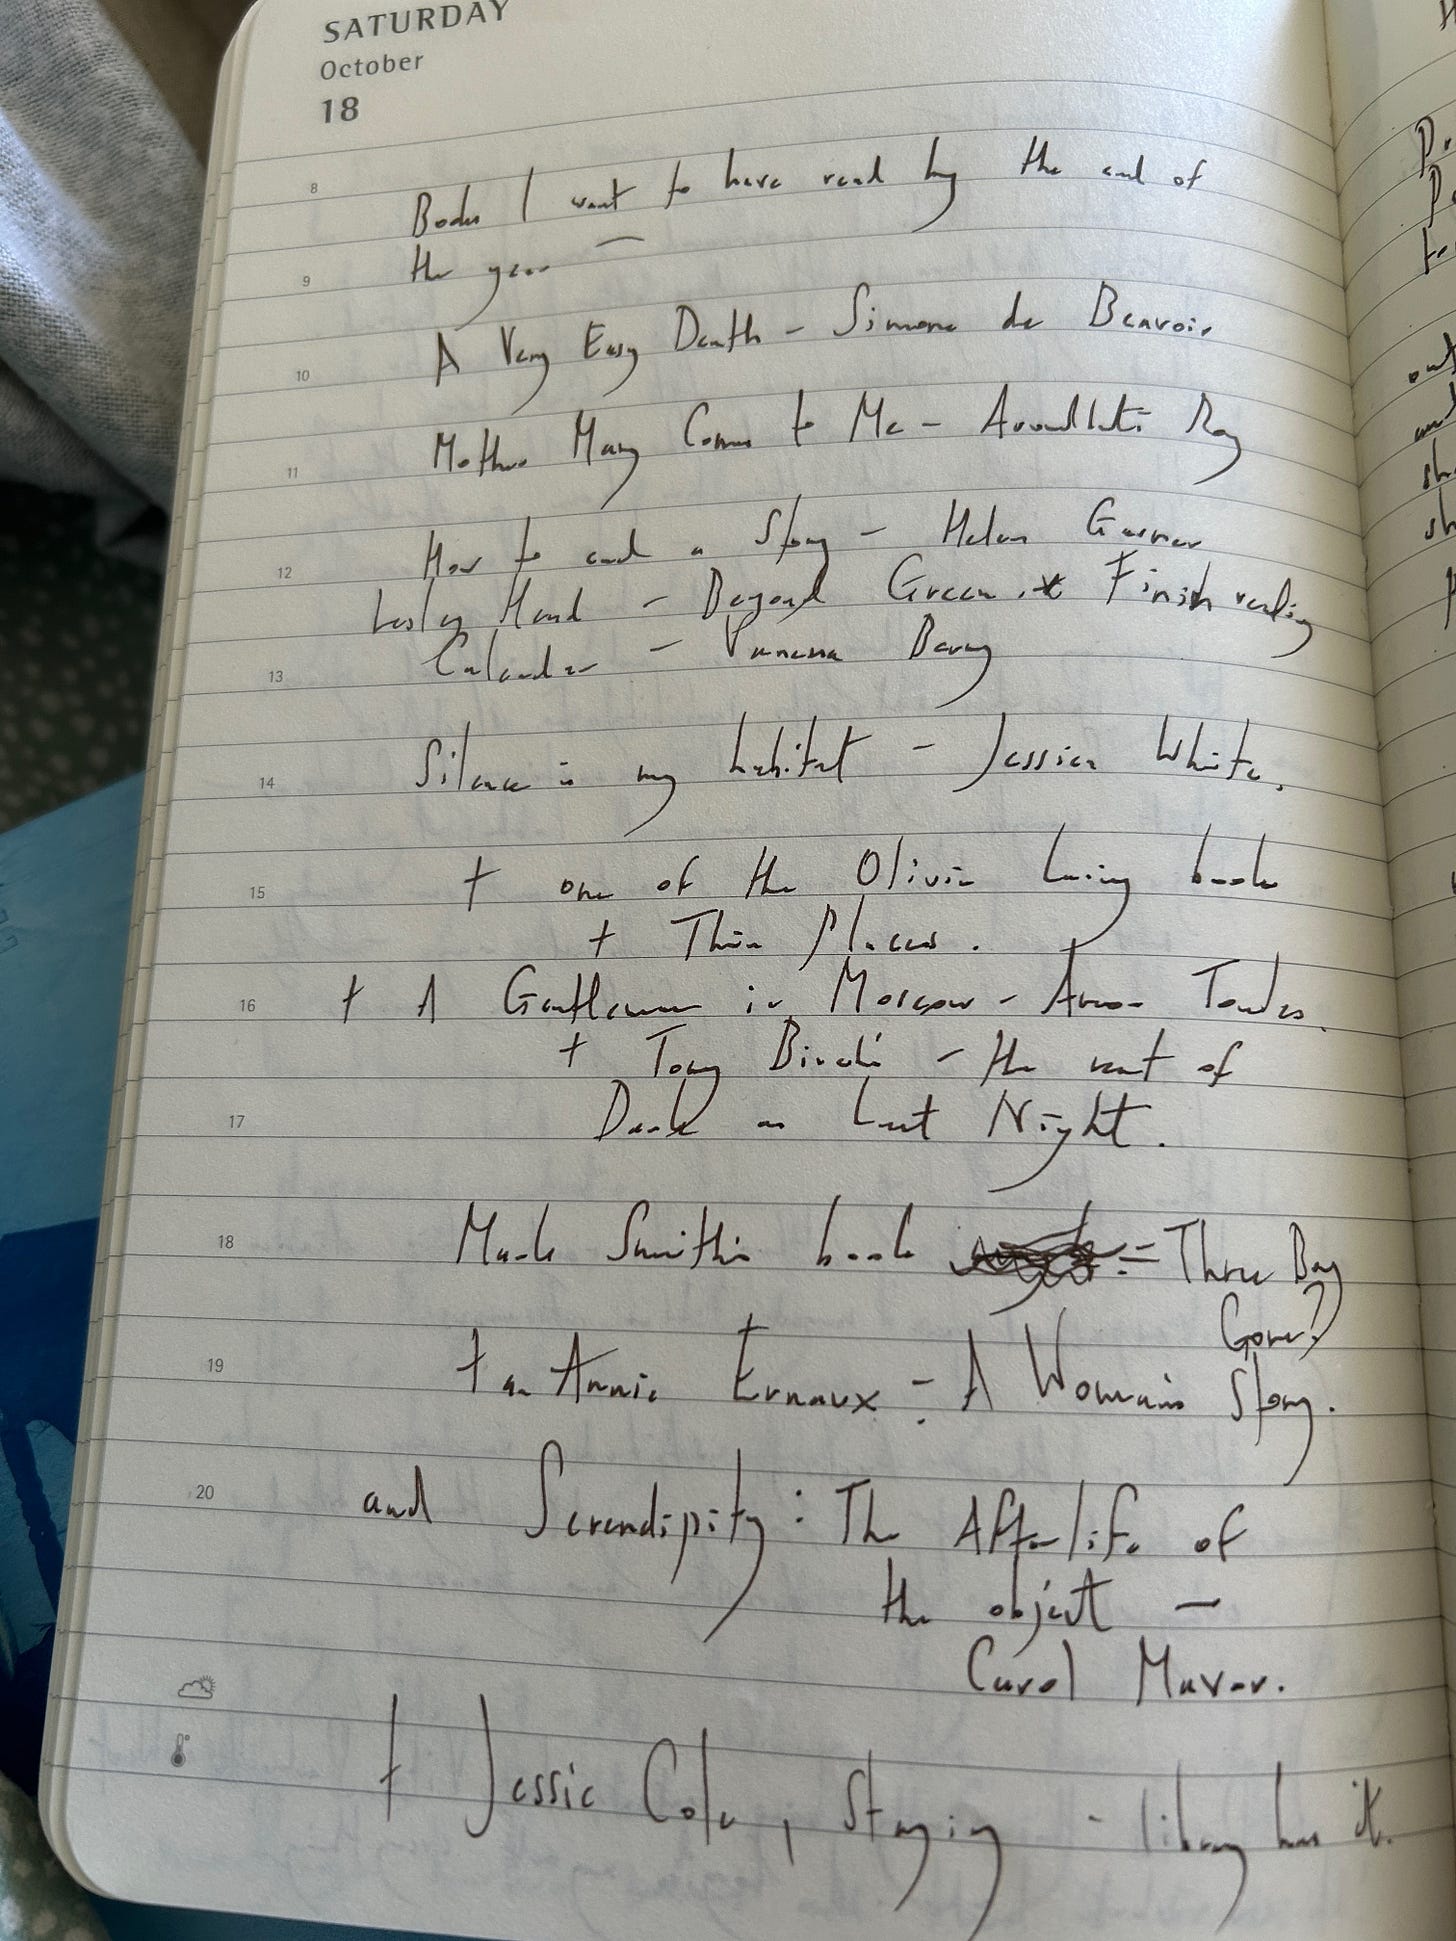 SATURDAY
October
18
8
Books I want to have read by the end of
9
the year —
A Very Easy Death - Simone de Beavoir
10
Mother Mary Comes to Me - Arundhati Roy
11
How to end a Story - Helen Garner
12
Lesley Head - Beyond Green * Finish reading
Calendar - Barry
13
Silence is my habitat - Jessica White.
14
+ one of the Olivia Laing books
15
+ Thin Places.
+ A Gentleman in Moscow - Amor Towles.
16
+ Tony Birch - the rest of
Dark as Last Night.
17
Mark Smith's book - Three Boys
18
Gone?
+ an Annie Ernaux - A Woman's Story.
19
and Serendipity: The Afterlife of
20
the object -
Carol Mavor.
+ Jessie Cole, Staying - library has it.
out
and